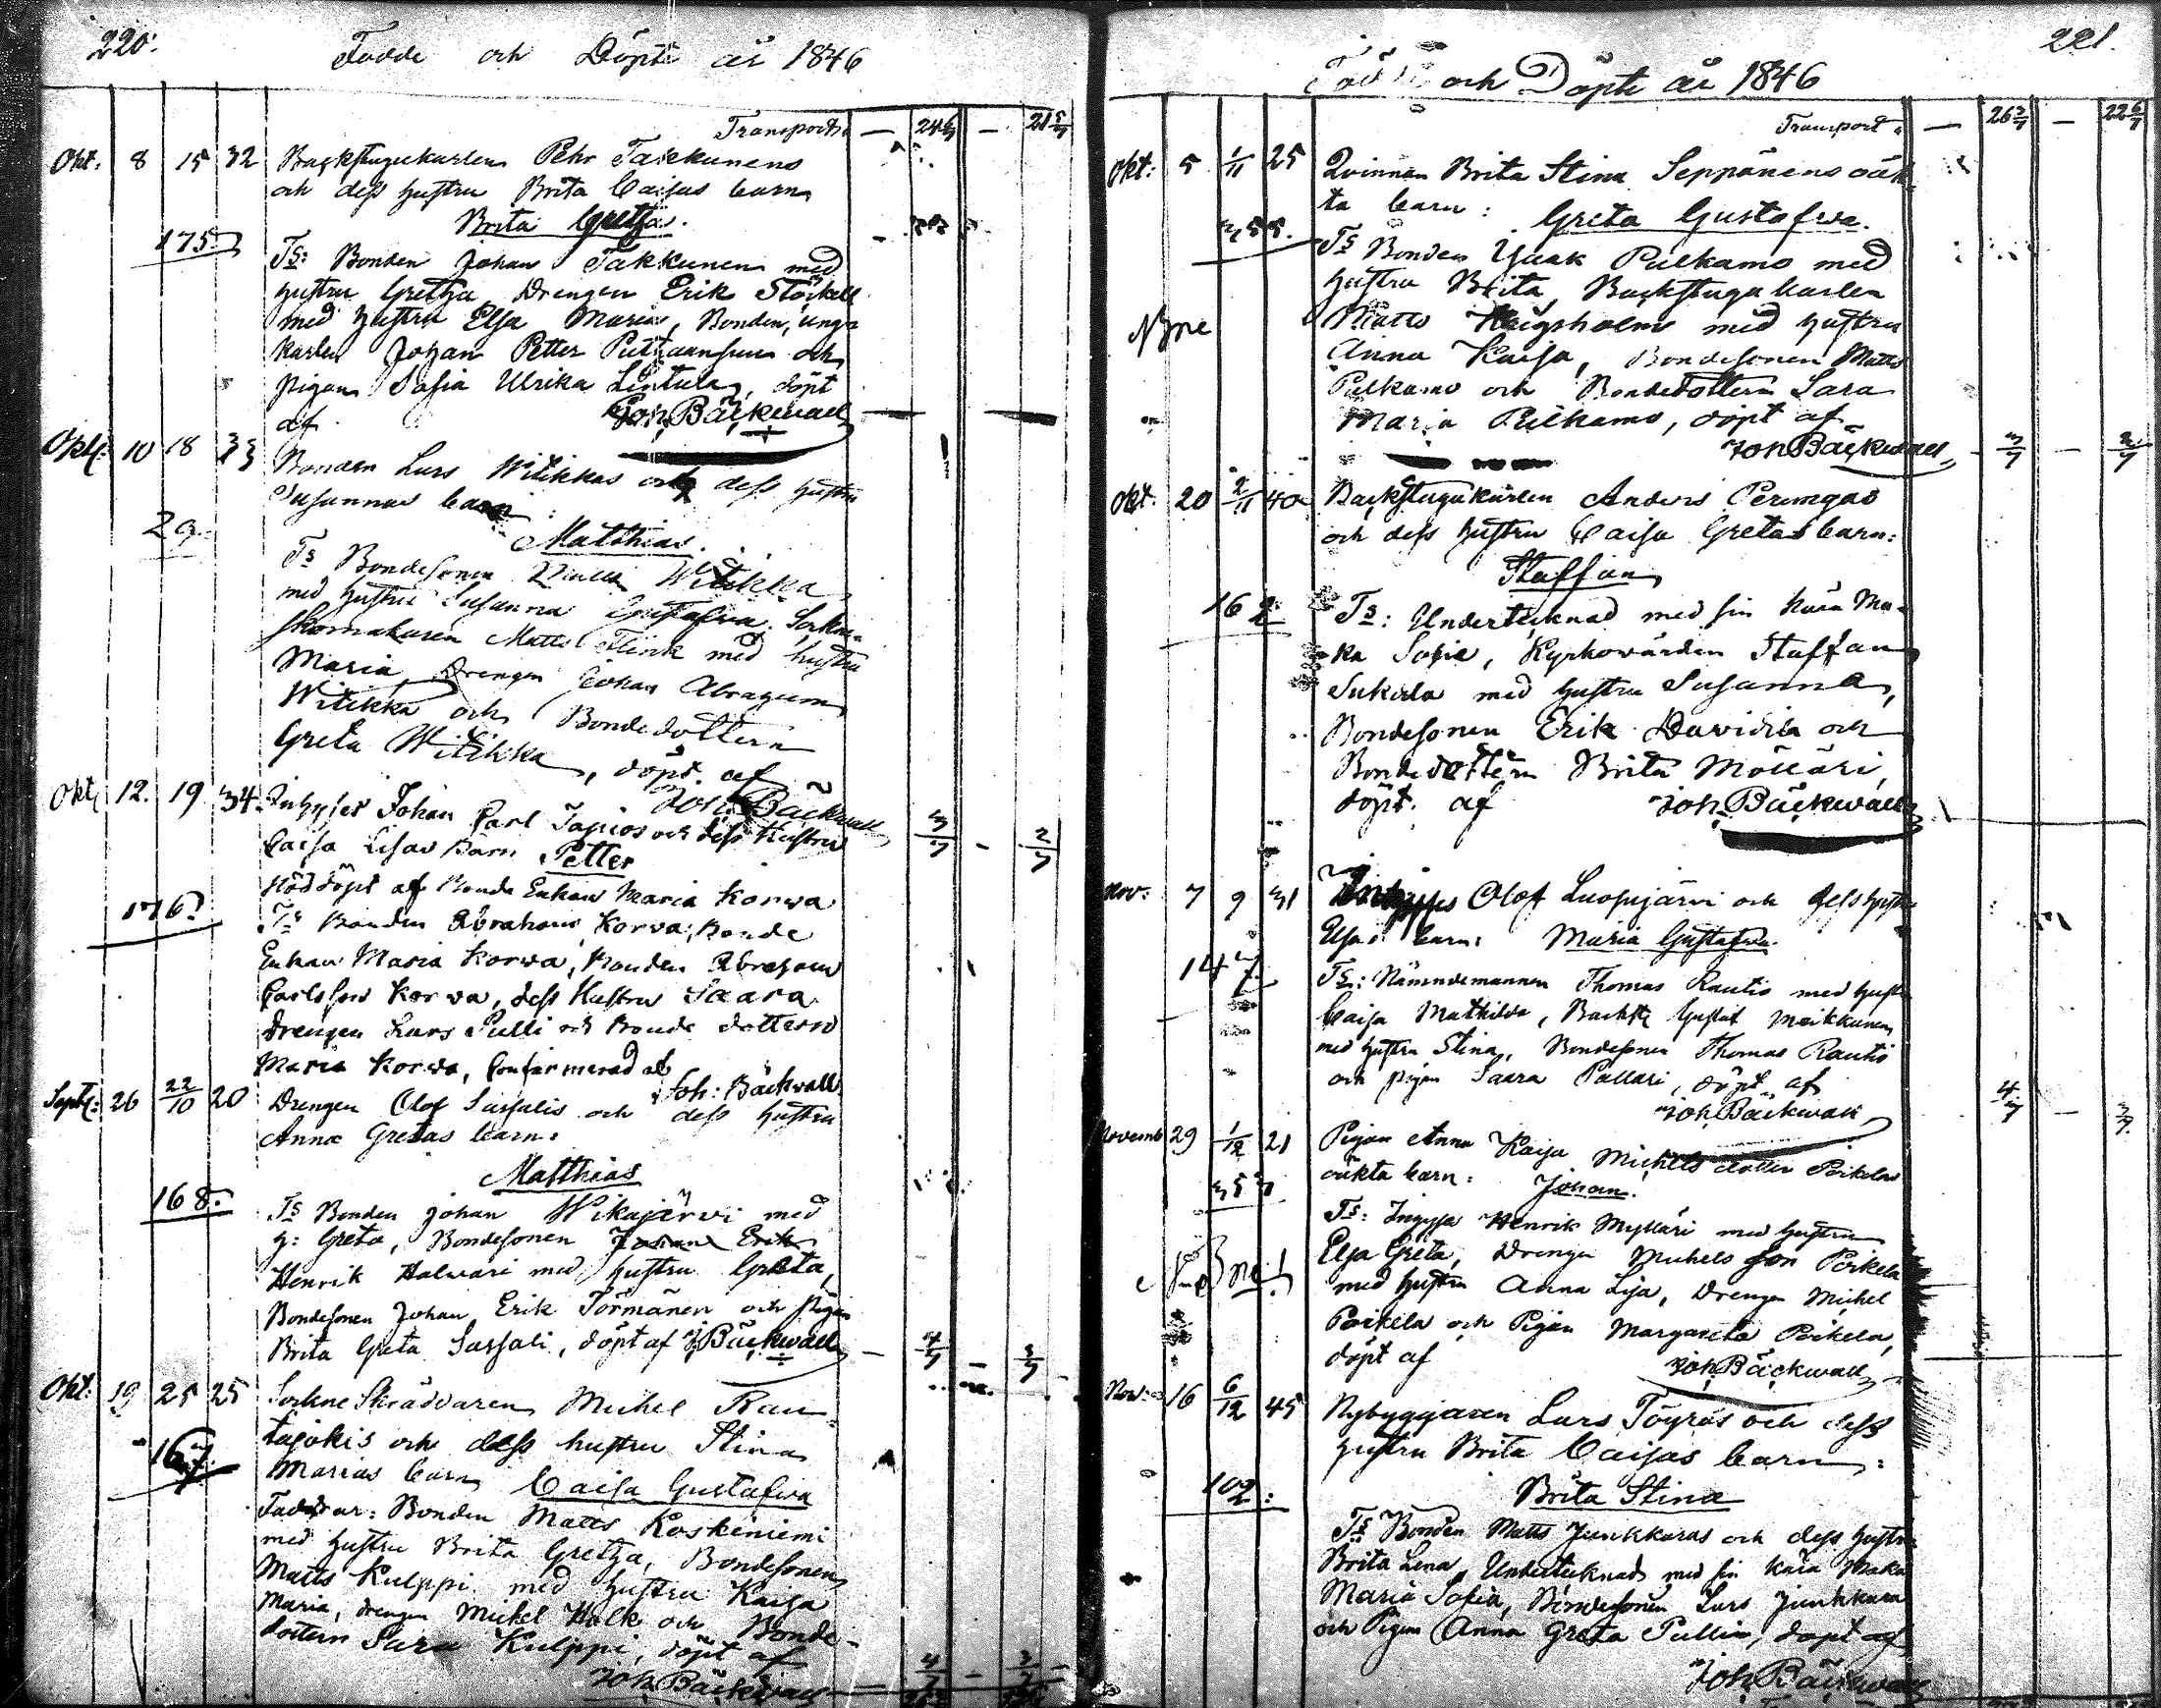 220.
Födde och Döpte år 1846
Transport
24 6/7 — 21 5/7
Okt: 8 15 32 Backstugukarlen Pehr Takkunens
och dess hustru Brita Caisas barn
Brita Gretha.
175.
Ts: Bonden Johan Takkunen med
hustru Gretha, Drengen Erik Stöckell
med hustru Elsa Maria, Bonden, ung-
karlen Johan Petter och
pigan Sofia Ulrika Lintula, döpt
af Joh. Bäckwall
Okt: 10 18 33 Bonden Lars Witikkas och dess hustru
Susannas barn:
29.
Matthias.
Ts Bondesonen Witikka
med hustru Susanna Gustafva, Sockne-
skomakaren Matts Flink med hustru
Maria, Drengen Johan Abraham
Witikka och Bondedottern
Greta Witikka, döpt af
Joh. Bäckwall
Okt: 12. 19 34. Inhyses Johan Carl Tapios och dess Hustru
Caisa Lisas Barn Petter
3/7 — 2/7
nöddöpt af Bonde Enkan Maria Korwa
176.
Ts Bonden Abraham Korva, Bonde
Enkan Maria Korwa, Bonden Abraham
Carlsson Korva, dess Hustru Saara
drengen Lars Pulli och Bonde dottern
Maria Korva, Confirmerad af
Joh: Bäckwall
Septe: 26 22/10 20 Drengen Olof Sassalis och dess hustru
Anna Gretas barn:
Matthias
168.
Ts Bonden Johan Wikajärvi med
h: Greta, Bondesonen Johan Erik
Henrik Halvari med hustru Greta,
Bondesonen Johan Erik Törmänen och pigan
Brita Greta Sassali, döpt af J. Bäckwall
— 4/7 — 3/7
Okt: 19 25 25 Sockne Skräddaren Michel Rau-
tajokis och dess hustru Stina
167.
Marias barn Caisa Gustafva
Faddrar: Bonden Matts Koskeniemi
med hustru Brita Gretha, Bondesonen
Matts Kulppi med hustru Kaisa
Maria, drengen Mickel Halk och Bonde-
dottern Sara Kulppi, döpt af
Joh. Bäckwall — 4/7 — 3/7
221.
Födde och Döpte år 1846
Transport — 26 3/7 — 22 6/7
Okt: 5 1/11 25 Qvinnan Brita Stina Seppänens oäk-
ta barn: Greta Gustafva.
355.
Ts Bonden Isaak Pulkamo med
hustru Brita, Backstugukarlen
Matts med hustru
Anna Kaisa, Bondesonen Matts
Pulkamo och Bondedottern Sara
Maria Pulkamo, döpt af
Joh Bäckwall
3/7 — 3/7
Okt. 20 2/11 40 Backstugukarlen Anders
och dess hustru Caisa Gretas barn:
Staffan
162.
Ts: Undertecknad med sin kära Ma-
ka Sofie, Kyrkowärden Staffan
Sukula med hustru Susanna,
Bondesonen Erik Davidila och
Bondedottern Brita Möllari,
döpt. af Joh. Bäckwall
Nov: 7 9 31 Inhyses Olof Luopajärvi och dess hustru
Elsas barn: Maria Gustafva.
147.
Ts: Nämndemannen Thomas Rautio med hustru
Caisa Mathilda, Backst: Gustaf Moikkunen
med hustru Stina, Bondesonen Thomas Rautio
och pigan Saara Pallari, döpt af
Joh. Bäckwall
4/7 — 3/7
Novemb 29 1/12 21 Pigan Anna Kaisa Michels dotter Poikelas
oäkta barn: Johan.
353
Ts: Inhyses Henrik Mylläri med hustru
Elsa Greta, Drengen Michels son Poikela
med hustru Anna Lisa, Drengen Michel
Poikela och Pigan Margareta Poikela,
döpt af Joh. Bäckwall
Nov: 16 6/12 45 Nybyggaren Lars Töyräs och dess
hustru Brita Caisas barn:
102:
Brita Stina
Ts Bonden Matts Junkkaras och dess hustru
Brita Lena, Undertecknad med sin kära Maka
Maria Sofia, Bondesonen Lars Junkkara
och Pigan Anna Greta Pullin, döpt af
Joh Bäckwall